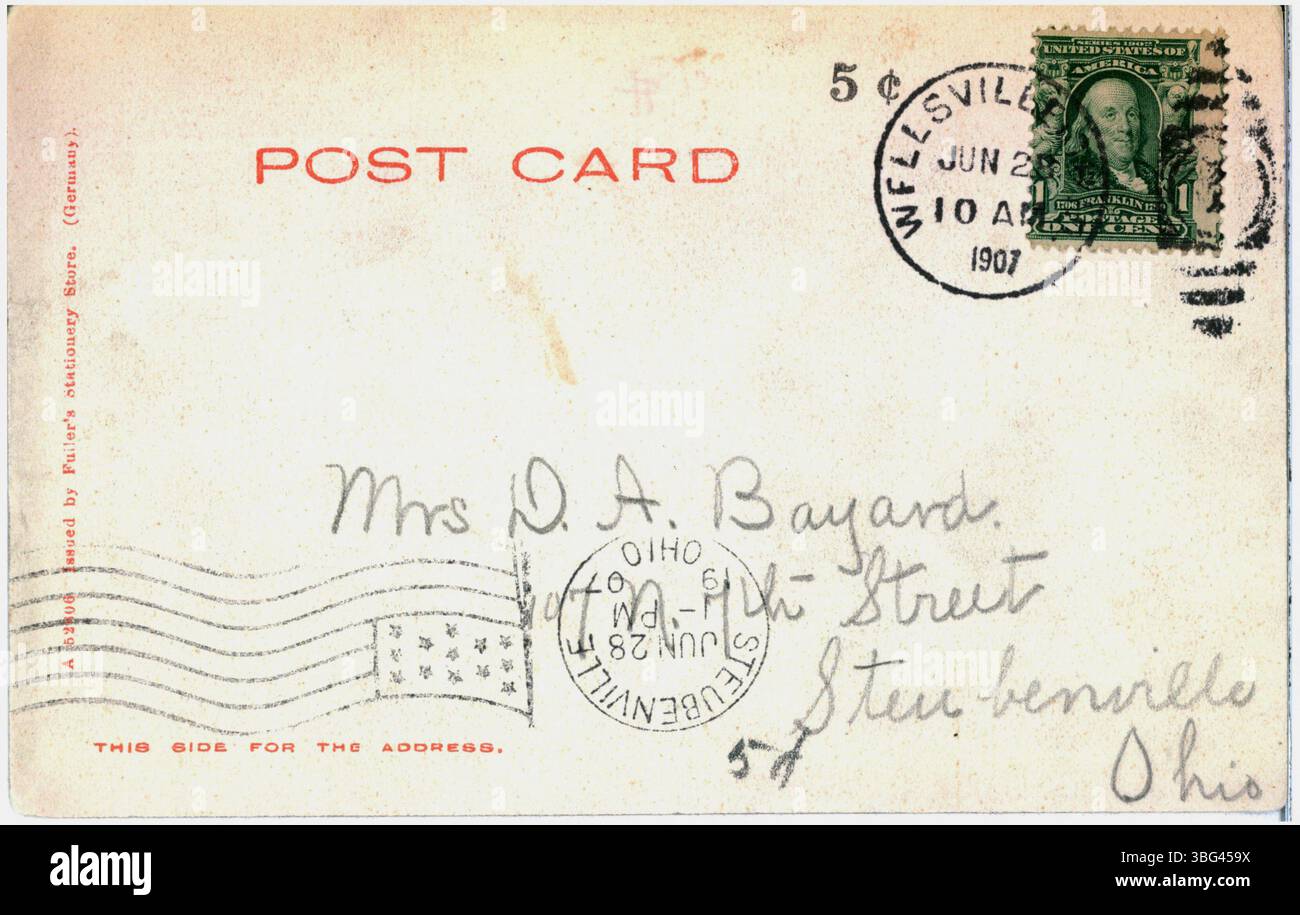 POST CARD
5 ¢
WELLSVILLE
JUN 28
10 AM
1907
SERIES 1902
UNITED STATES OF
AMERICA
1 1
1706 FRANKLIN
POSTAGE
ONE CENT
A 52806 Issued by Fuller's Stationery Store. (Germany).
Mrs D. A. Bayard.
N. 7th Street
Steubenville
Ohio
STEUBENVILLE
JUN 28
1- PM
1907
OHIO
5¢
THIS SIDE FOR THE ADDRESS.
a alamy
alamy
Image ID: 3BG459X
www.alamy.com